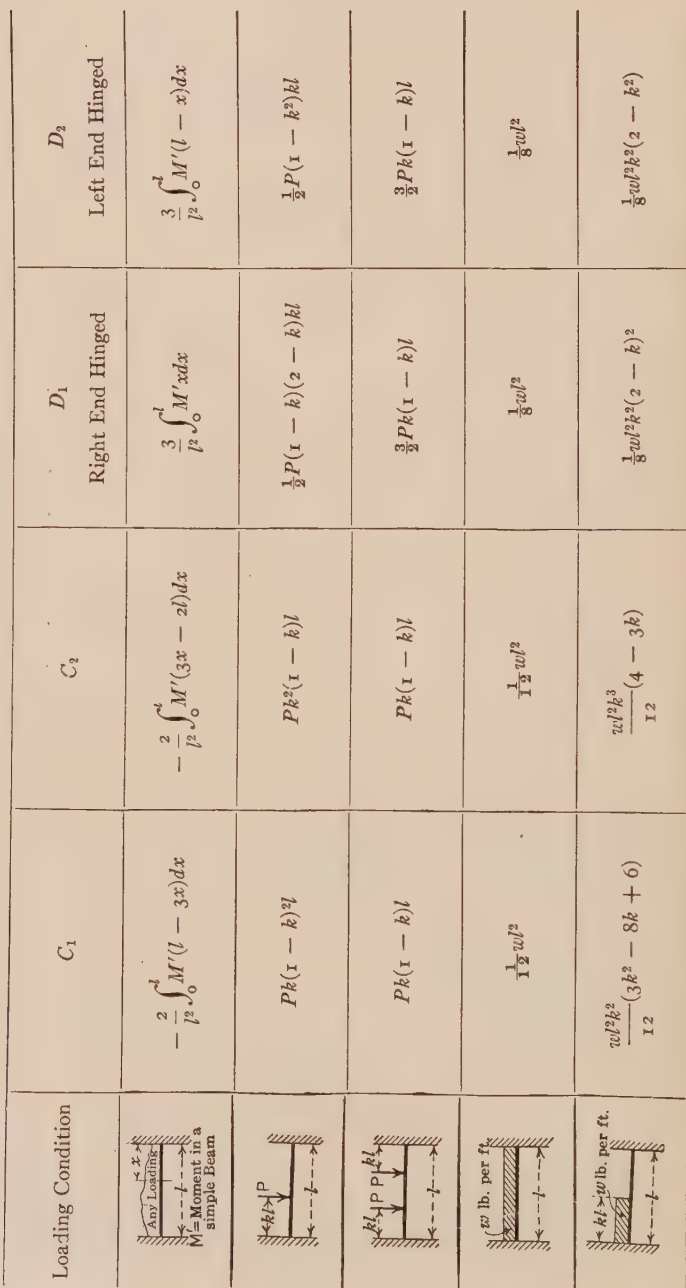 Loading Condition | C₁ | C₂ | D₁ Right End Hinged | D₂ Left End Hinged
Any Loading x l M=Moment in a simple Beam | −2/l² ∫₀ˡ M′(l − 3x)dx | −2/l² ∫₀ˡ M′(3x − 2l)dx | 3/l² ∫₀ˡ M′xdx | 3/l² ∫₀ˡ M′(l − x)dx
kl P l | Pk(1 − k)²l | Pk²(1 − k)l | ½P(1 − k)(2 − k)kl | ½P(1 − k²)kl
kl P P kl l | Pk(1 − k)l | Pk(1 − k)l | 3/2Pk(1 − k)l | 3/2Pk(1 − k)l
w lb. per ft. l | 1/12wl² | 1/12wl² | ⅛wl² | ⅛wl²
kl w lb. per ft. l | wl²k²/12(3k² − 8k + 6) | wl²k³/12(4 − 3k) | ⅛wl²k²(2 − k)² | ⅛wl²k²(2 − k²)